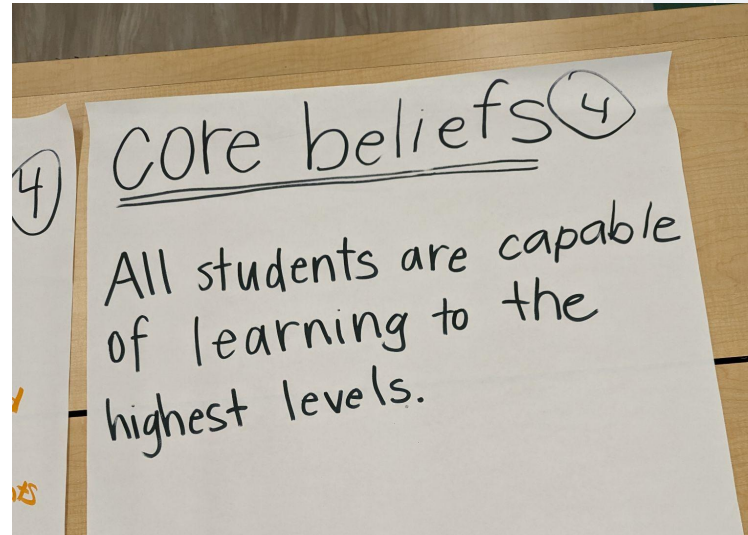 core beliefs 4
All students are capable
of learning to the
highest levels.
4